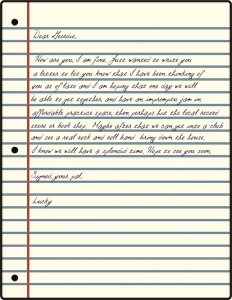 Dear Geordie,
How are you, I am fine. Just wanted to write you
a letter to let you know that I have been thinking of
you as of late and I am hoping that one day we will
be able to get together and have an impromptu jam in
affordable practice space, then perhaps hit the local record
store or book shop. Maybe after that we can get into a club
and see a real rock and roll band bring down the house.
I know we will have a splendid time. Hope to see you soon.
Signed your pal,
Lucky